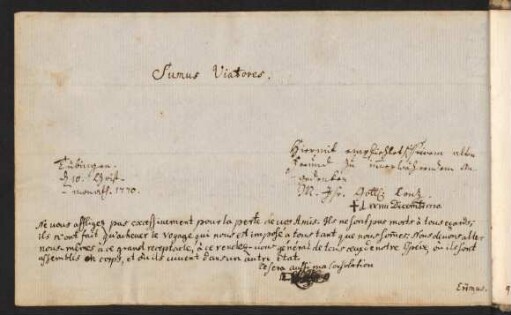 Sumus Viatores.
Tübingen.
d. 10. Christ-
monath. 1770.
Hiermit empfiehlet seinem alten
Freund zu
M. Gottl.
Ne vous affligez pas excessivement pour la perte de vos Amis. Ils ne sont pas morts à tous egards;
ils n'ont fait qu'achever le voyage qui nous est imposé à tous tant que nous sommes. Nous devons aller
nous-mêmes à ce grand receptacle, à ce rendez-vous général de tous ceux de notre Espèce, où ils sont
assemblés en corps, et où ils vivent dans un autre état.
Ce sera aussi ma consolation